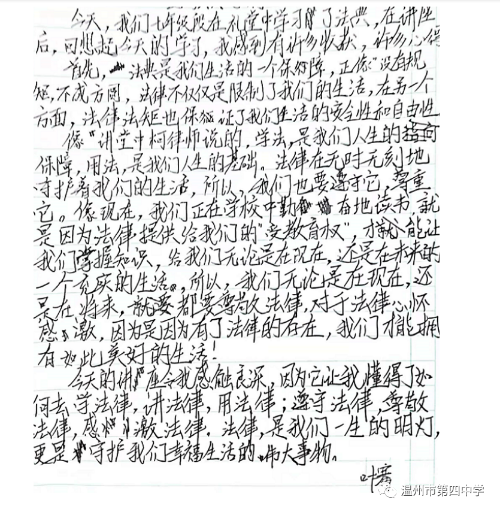 今天，我们七年级段在礼堂中学习了法典，在讲座
后，回想起今天的学习，我感到有许多收获，许多心得
首先，法典是我们生活的一个保障，正像"没有规
矩，不成方圆，法律不仅仅是限制了我们的生活，在另一个
方面，法律法矩也保证了我们生活的安全性和自由性
像"讲堂中柯律师说的，学法，是我们人生的指向
保障，用法，是我们人生的基础。法律在无时无刻地
守护着我们的生活，所以，我们也要遵守它，尊重
它。像现在，我们正在学校中勤奋地读书，就
是因为法律提供给我们的"受教育权"，才就能让
我们掌握知识，给我们无论是在现在，还是在未来的
一个充实的生活。所以，我们无论是在现在，还
是在将来，就要都要尊敬法律，对于法律心怀
感激，因为是因为有了法律的存在，我们才能拥
有如此美好的生活！
今天的讲座令我感触良深，因为它让我懂得了如
何去学法律，讲法律，用法律；遵守法律，尊敬
法律，感激法律。法律，是我们一生的明灯，
更是守护我们幸福生活的伟大事物。
叶
温州市第四中学